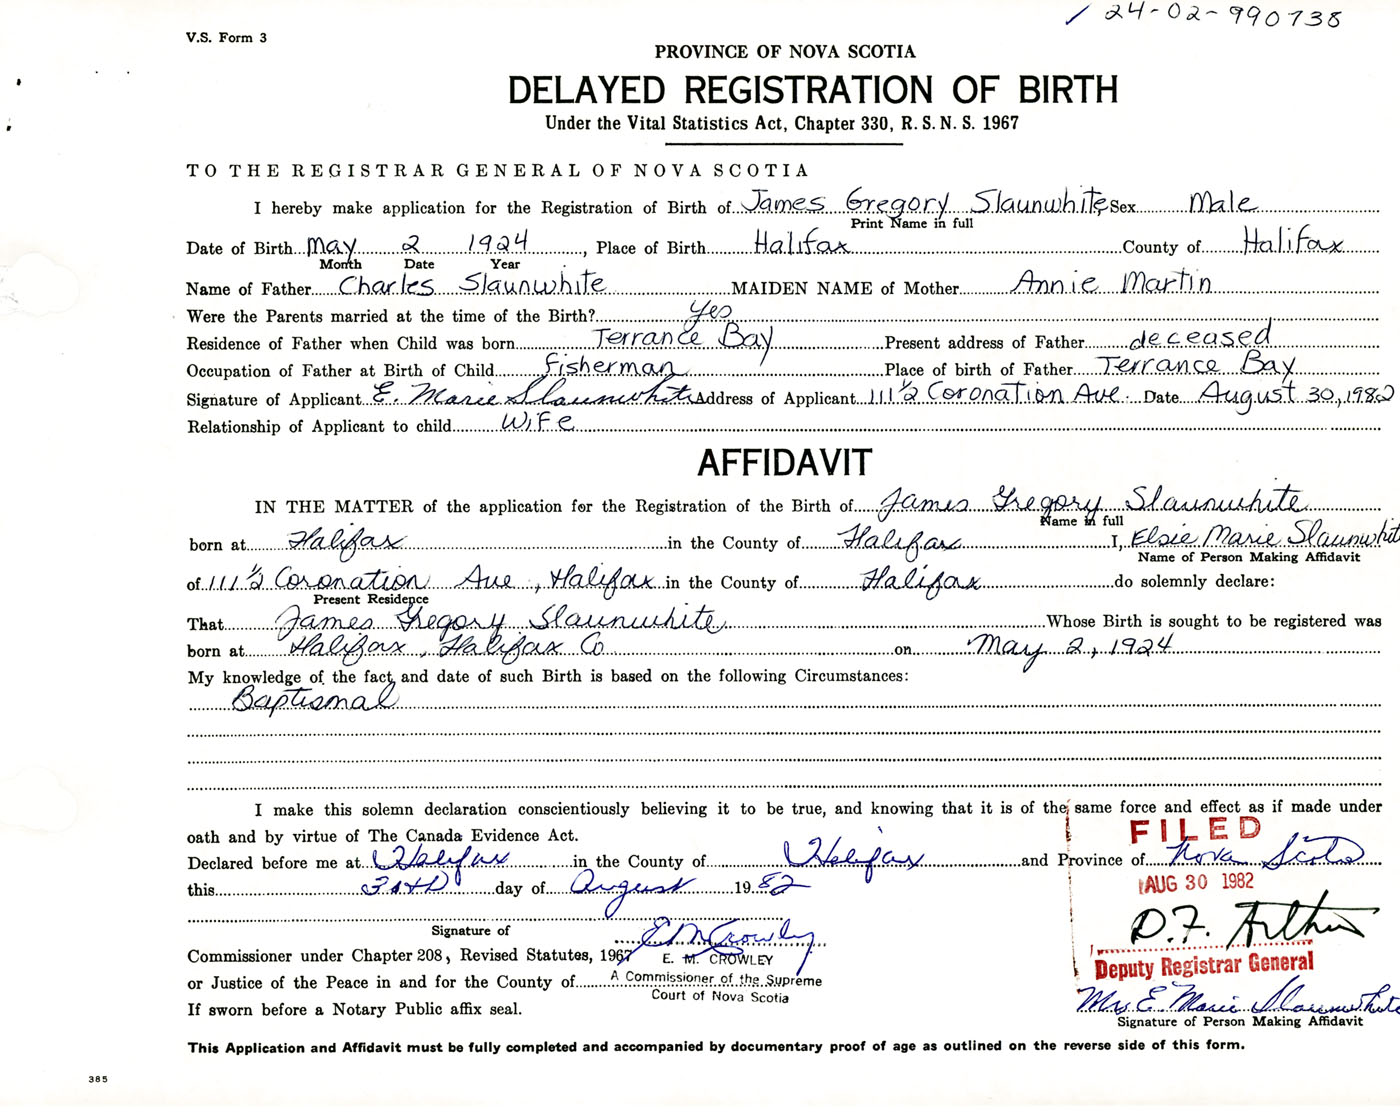 24-02-990738
V.S. Form 3
PROVINCE OF NOVA SCOTIA
DELAYED REGISTRATION OF BIRTH
Under the Vital Statistics Act, Chapter 330, R. S. N. S. 1967
TO THE REGISTRAR GENERAL OF NOVA SCOTIA
I hereby make application for the Registration of Birth of James Gregory Slaunwhite Sex Male
Print Name in full
Date of Birth May 2 1924, Place of Birth Halifax County of Halifax
Month Date Year
Name of Father Charles Slaunwhite MAIDEN NAME of Mother Annie Martin
Were the Parents married at the time of the Birth? Yes
Residence of Father when Child was born Terrance Bay Present address of Father deceased
Occupation of Father at Birth of Child Fisherman Place of birth of Father Terrance Bay
Signature of Applicant E. Marie Slaunwhite Address of Applicant 111½ Coronation Ave. Date August 30, 1982
Relationship of Applicant to child Wife
AFFIDAVIT
IN THE MATTER of the application for the Registration of the Birth of James Gregory Slaunwhite
Name in full
born at Halifax in the County of Halifax I, Elsie Marie Slaunwhit
Name of Person Making Affidavit
of 111½ Coronation Ave, Halifax in the County of Halifax do solemnly declare:
Present Residence
That James Gregory Slaunwhite Whose Birth is sought to be registered was
born at Halifax, Halifax Co on May 2, 1924
My knowledge of the fact and date of such Birth is based on the following Circumstances:
Baptismal
I make this solemn declaration conscientiously believing it to be true, and knowing that it is of the same force and effect as if made under
oath and by virtue of The Canada Evidence Act.
FILED
Declared before me at Halifax in the County of Halifax and Province of Nova Scotia
this 30th day of August 1982
AUG 30 1982
D.F. Arthur
Signature of E M Crowley
Commissioner under Chapter 208, Revised Statutes, 1967 E. M. CROWLEY
Deputy Registrar General
or Justice of the Peace in and for the County of A Commissioner of the Supreme
Court of Nova Scotia
Mrs E. Marie Slaunwhite
If sworn before a Notary Public affix seal.
Signature of Person Making Affidavit
This Application and Affidavit must be fully completed and accompanied by documentary proof of age as outlined on the reverse side of this form.
385